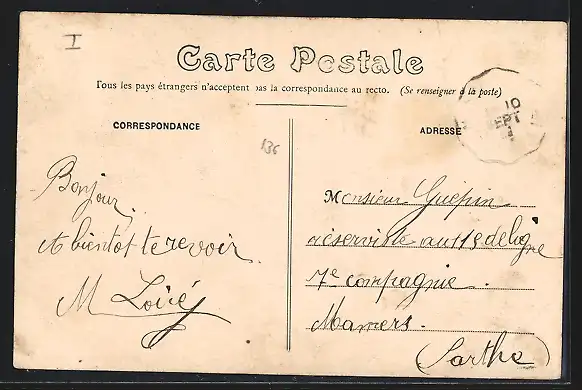 I
Carte Postale
Tous les pays étrangers n'acceptent pas la correspondance au recto. (Se renseigner à la poste)
CORRESPONDANCE
ADRESSE
10
SEPT
136
Bonjour.
et bientot te revoir.
M Loité
Monsieur Guépin
réserviste au 115 de ligne
7e compagnie.
Mamers.
(Sarthe)